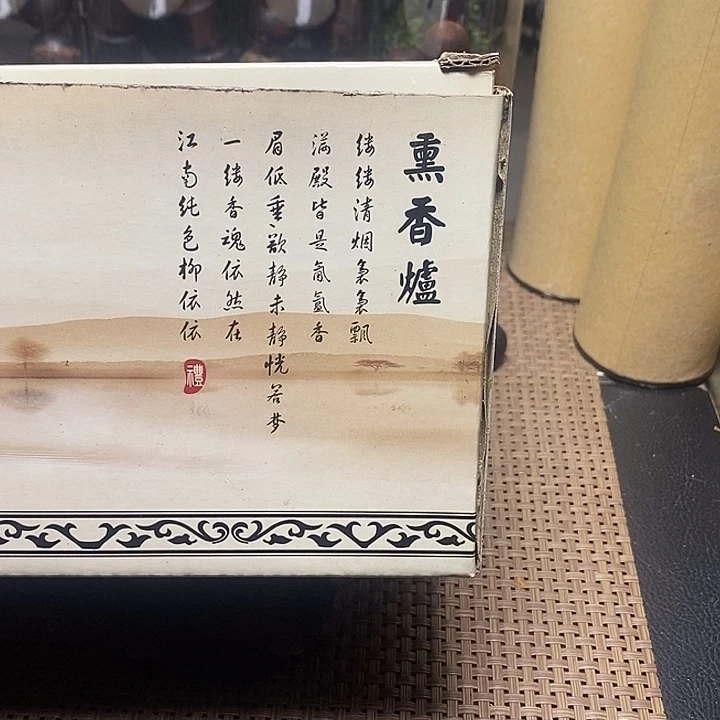 熏香爐
缕缕清烟袅袅飘
满殿皆是氤氲香
眉低垂、歆静未静恍若梦
一缕香魂依然在
江南纯色柳依依
禮